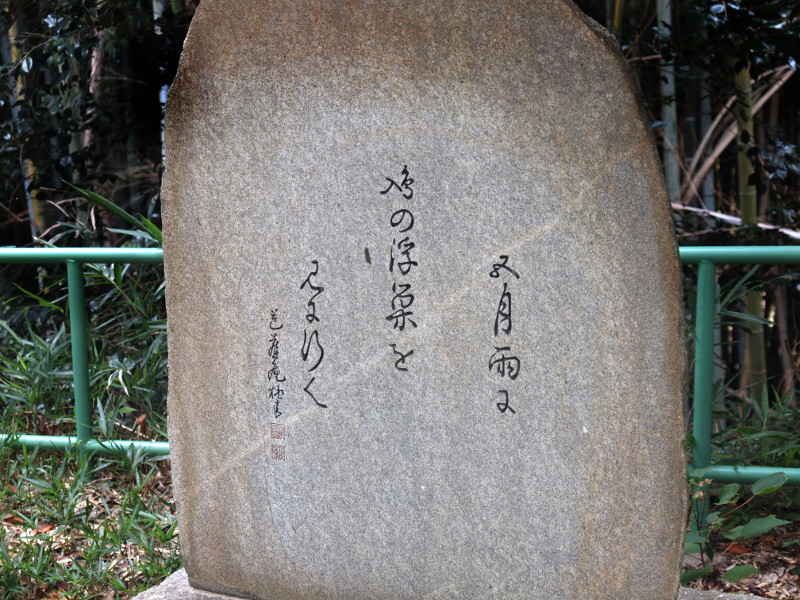 五月雨に
鳰の浮巣を
見に行く
芭蕉庵桃青